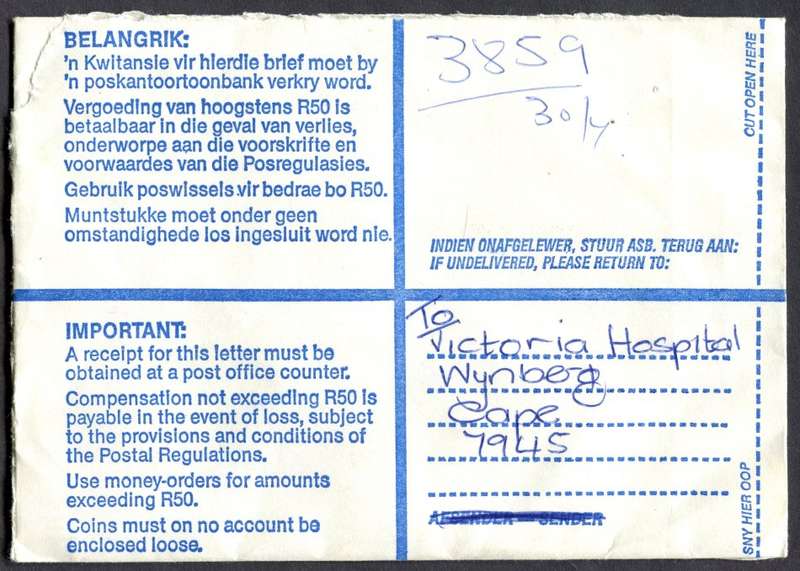 BELANGRIK:
'n Kwitansie vir hierdie brief moet by
'n poskantoortoonbank verkry word.
Vergoeding van hoogstens R50 is
betaalbaar in die geval van verlies,
onderworpe aan die voorskrifte en
voorwaardes van die Posregulasies.
Gebruik poswissels vir bedrae bo R50.
Muntstukke moet onder geen
omstandighede los ingesluit word nie.
3859
30/4
CUT OPEN HERE
INDIEN ONAFGELEWER, STUUR ASB. TERUG AAN:
IF UNDELIVERED, PLEASE RETURN TO:
IMPORTANT:
A receipt for this letter must be
obtained at a post office counter.
Compensation not exceeding R50 is
payable in the event of loss, subject
to the provisions and conditions of
the Postal Regulations.
Use money-orders for amounts
exceeding R50.
Coins must on no account be
enclosed loose.
To
Victoria Hospital
Wynberg
Cape
7945
AFSENDER — SENDER
SNY HIER OOP